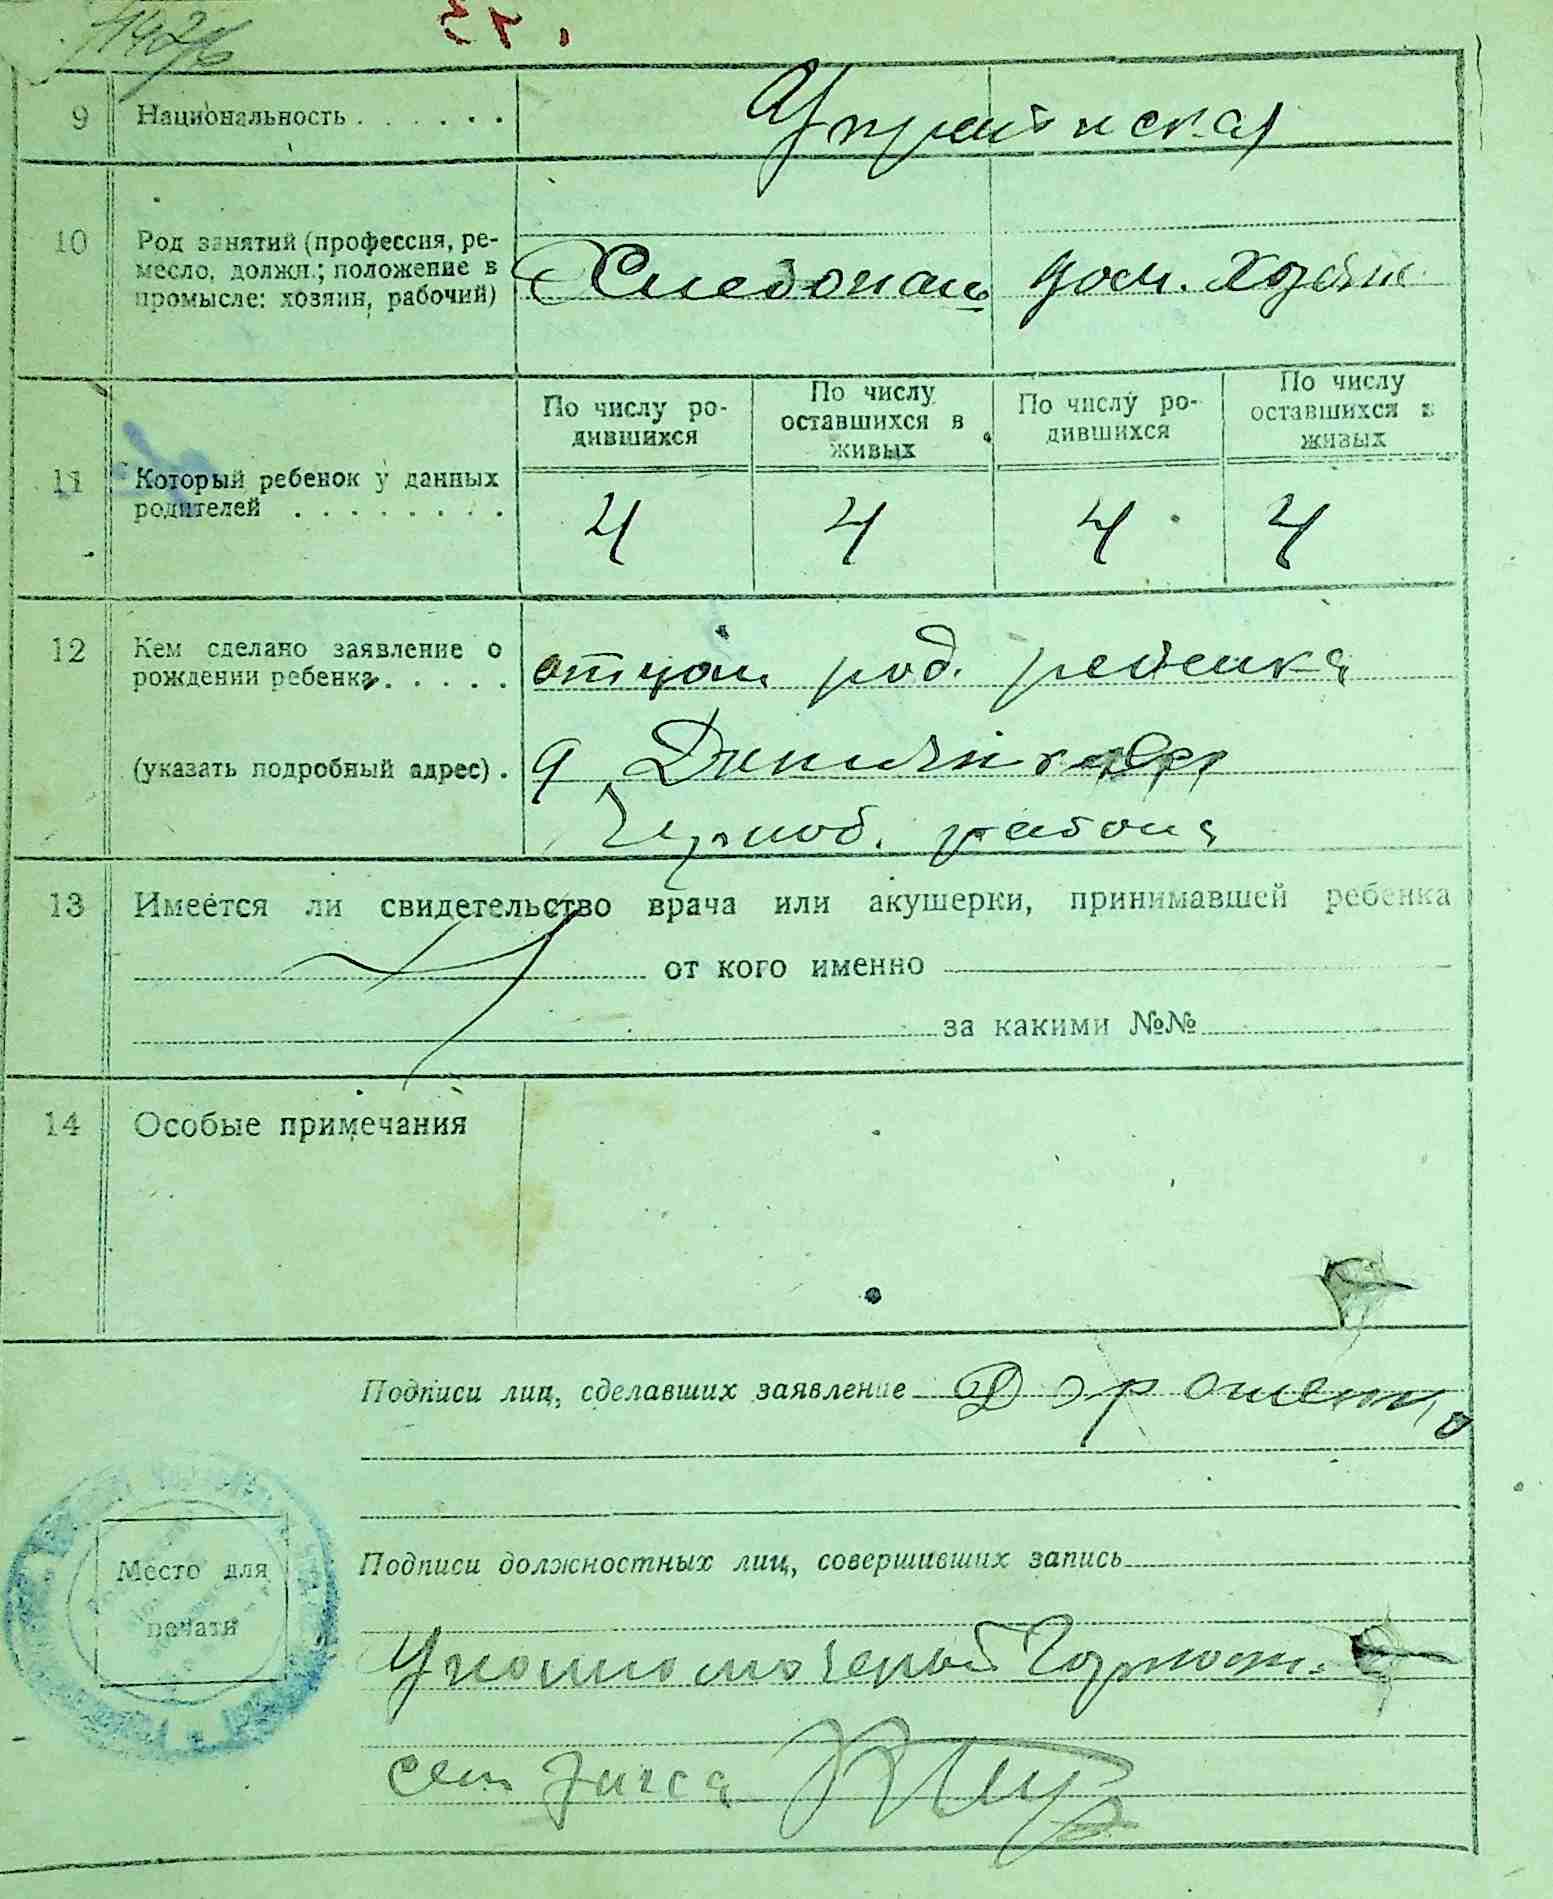 9 Национальность . . . . . . Украинская
10 Род занятий (профессия, ре-
месло, должн.; положение в
промысле: хозяин, рабочий)
Хлебопаш дом. хозяйк
11 Который ребенок у данных
родителей . . . . . . . .
По числу ро-
дившихся
По числу
оставшихся в
живых
По числу ро-
дившихся
По числу
оставшихся в
живых
4 4 4 4
12 Кем сделано заявление о
рождении ребенка . . . . .
отцом род. ребенка
(указать подробный адрес) . д
района
13 Имеется ли свидетельство врача или акушерки, принимавшей ребенка
от кого именно
за какими №№
14 Особые примечания
Подписи лиц, сделавших заявление Дорошенко
Подписи должностных лиц, совершивших запись
Место для
печати
Уполномоченый
сел загса